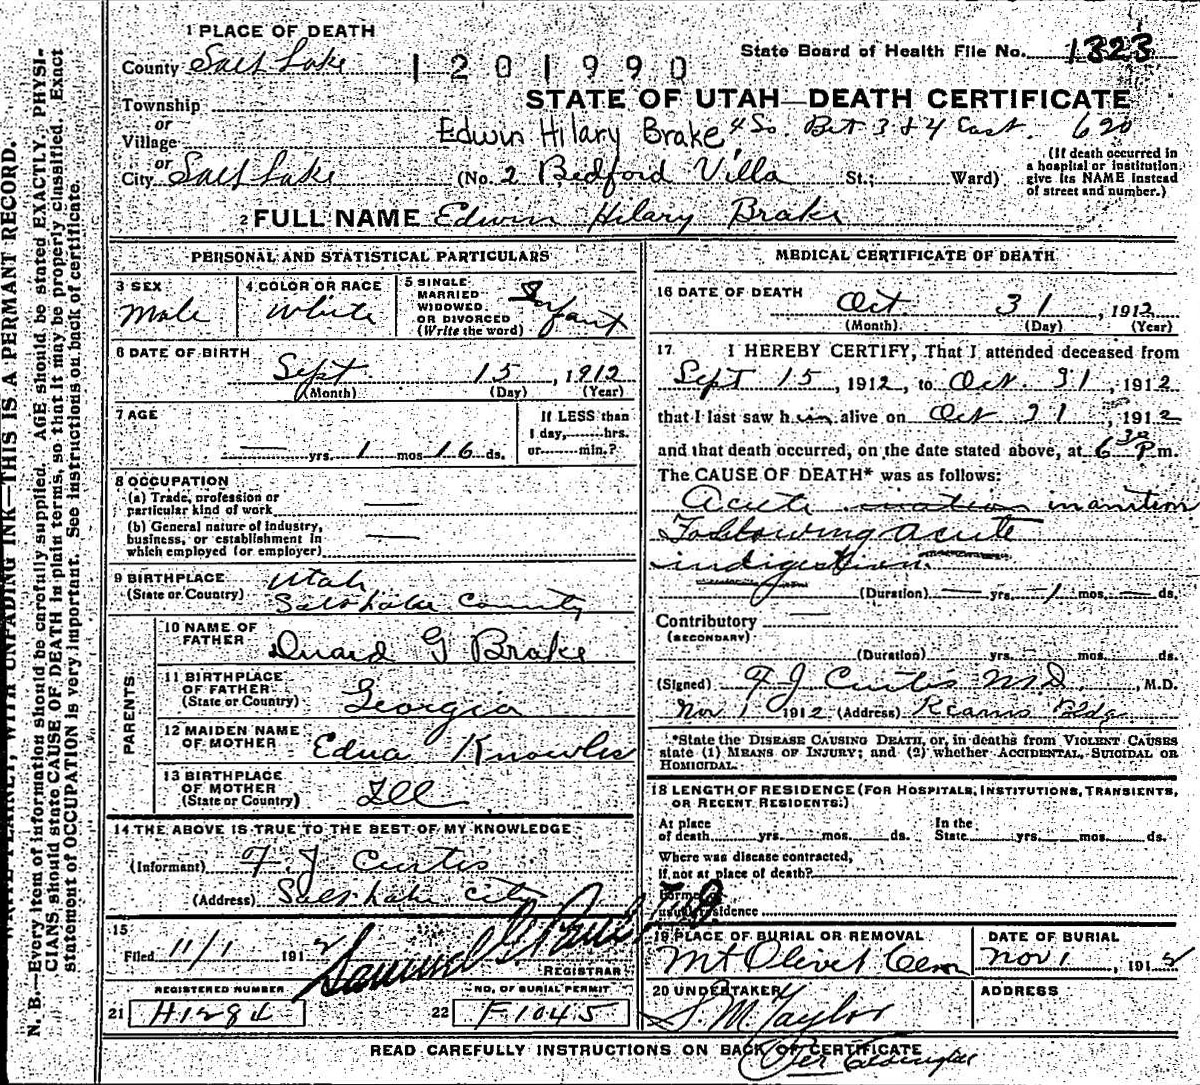 WRITE PLAINLY, WITH UNFADING INK—THIS IS A PERMANT RECORD.
N. B.—Every item of information should be carefully supplied. AGE should be stated EXACTLY. PHYSI-
CIANS should state CAUSE OF DEATH in plain terms, so that it may be properly classified. Exact
statement of OCCUPATION is very important. See instructions on back of certificate.
1 PLACE OF DEATH
County Salt Lake
1201990
State Board of Health File No. 1323
Township
STATE OF UTAH—DEATH CERTIFICATE
or
Village
Edwin Hilary Brake 4 So. Bet 3 & 4 East. 620
or
City Salt Lake (No. 2 Bedford Villa St.; Ward)
(If death occurred in
a hospital or institution
give its NAME instead
of street and number.)
2 FULL NAME Edwin Hilary Brake
PERSONAL AND STATISTICAL PARTICULARS
3 SEX
Male
4 COLOR OR RACE
White
5 SINGLE
MARRIED
WIDOWED
OR DIVORCED
(Write the word)
Infant
6 DATE OF BIRTH
Sept 15, 1912
(Month) (Day) (Year)
7 AGE
— yrs. 1 mos 16 ds.
If LESS than
1 day, hrs.
or min.?
8 OCCUPATION
(a) Trade, profession or
particular kind of work —
(b) General nature of industry,
business, or establishment in
which employed (or employer) —
9 BIRTHPLACE
(State or Country)
Utah
Salt Lake County
PARENTS
10 NAME OF
FATHER
G Brake
11 BIRTHPLACE
OF FATHER
(State or Country)
Georgia
12 MAIDEN NAME
OF MOTHER
Edna Knowles
13 BIRTHPLACE
OF MOTHER
(State or Country)
Ill
14 THE ABOVE IS TRUE TO THE BEST OF MY KNOWLEDGE
(Informant) F J Curtis
(Address) Salt Lake City
15
Filed 11/1 1912
Samuel G. Paul M.D.
REGISTRAR
REGISTERED NUMBER
21 H1284
NO. OF BURIAL PERMIT
22 F1045
MEDICAL CERTIFICATE OF DEATH
16 DATE OF DEATH
Oct 31, 1912
(Month) (Day) (Year)
17 I HEREBY CERTIFY, That I attended deceased from
Sept 15, 1912, to Oct. 31, 1912
that I last saw him alive on Oct 31, 1912
and that death occurred, on the date stated above, at 6 30 P.m.
The CAUSE OF DEATH* was as follows:
Acute inanition
Following acute
indigestion.
(Duration) — yrs. 1 mos. — ds.
Contributory —
(SECONDARY)
(Duration) yrs. mos. ds.
(Signed) F J Curtis M.D., M.D.
Nov 1 1912 (Address) Kearns Bldg
*State the DISEASE CAUSING DEATH, or, in deaths from VIOLENT CAUSES
state (1) MEANS OF INJURY; and (2) whether ACCIDENTAL, SUICIDAL OR
HOMICIDAL.
18 LENGTH OF RESIDENCE (FOR HOSPITALS, INSTITUTIONS, TRANSIENTS,
OR RECENT RESIDENTS.)
At place
of death yrs. mos. ds.
In the
State yrs. mos. ds.
Where was disease contracted,
if not at place of death?
Former or
usual residence
19 PLACE OF BURIAL OR REMOVAL
Mt Olivet Cem
DATE OF BURIAL
Nov 1, 1912
20 UNDERTAKER
S. M. Taylor
ADDRESS
READ CAREFULLY INSTRUCTIONS ON BACK OF CERTIFICATE
Per